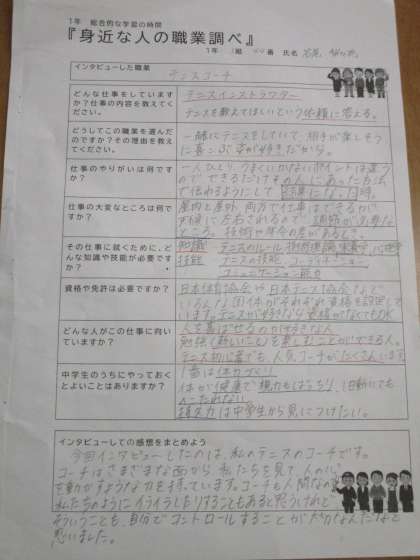 1年 総合的な学習の時間
『身近な人の職業調べ』
1年 組 番 氏名
インタビューした職業
テニスコーチ
どんな仕事をしていますか?仕事の内容を教えてください。
テニスインストラクター
テニスを教えてほしいという依頼に答える。
どうしてこの職業を選んだのですか?その理由を教えてください。
一緒にテニスをしていて、相手が楽しそうに
喜ぶ姿が好きだから。
仕事のやりがいは何ですか?
一人ひとりうまくいかないポイントは違う
ので できるだけその人にあった方法
で伝わるようにして 結果になった時。
仕事の大変なところは何ですか?
屋内と屋外 両方で仕事はできるが、
天候に左右されるので 調節が必要な
ところ。技術や年令の差があるとき。
その仕事に就くために、どんな知識や技能が必要ですか?
知識 テニスのルール 技術理論 栄養学 心理学
技能 テニスの技能
コミュニケーション能力
資格や免許は必要ですか?
日本体育協会や日本テニス協会など
いろんな団体がそれぞれ資格を設定して
います。テニスが好きなら資格がなくてもOK
どんな人がこの仕事に向いていますか?
人を喜ばせるのが好きな人
勉強(新しいこと)を楽しむことができる人。
テニス初心者でも、人気コーチがたくさんいます。
中学生のうちにやっておくとよいことはありますか?
1番は体力づくり
体が健康で 視力もばっちり 1日動いても
へこたれない。
持久力は中学生から身につけたい。
インタビューしての感想をまとめよう
今回インタビューしたのは、私のテニスのコーチです。
コーチはさまざまな面から 私たちを見て、人の心
を動かすような力を持っています。コーチも人間なので
私たちのようにイライラしたりすることもあると思うけれど
そういうことも、自分でコントロールすることが大切なんだなと
思いました。